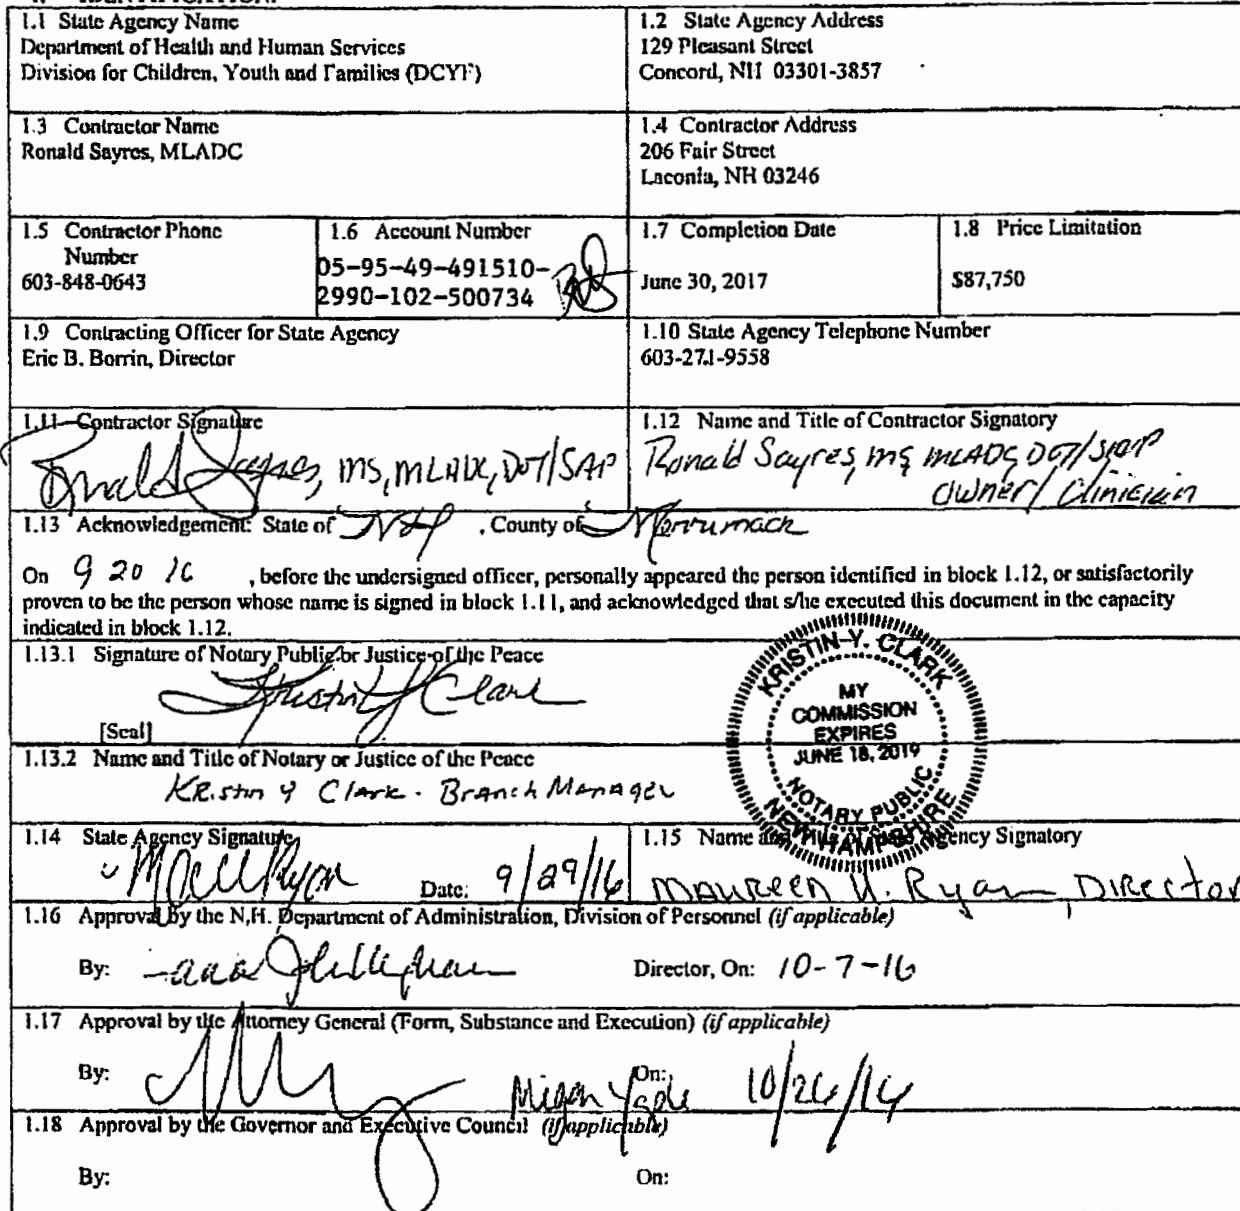 1.1 State Agency Name
Department of Health and Human Services
Division for Children, Youth and Families (DCYF)
1.2 State Agency Address
129 Pleasant Street
Concord, NH 03301-3857
1.3 Contractor Name
Ronald Sayres, MLADC
1.4 Contractor Address
206 Fair Street
Laconia, NH 03246
1.5 Contractor Phone
Number
603-848-0643
1.6 Account Number
05-95-49-491510-
2990-102-500734
1.7 Completion Date
June 30, 2017
1.8 Price Limitation
$87,750
1.9 Contracting Officer for State Agency
Eric B. Borrin, Director
1.10 State Agency Telephone Number
603-271-9558
1.11 Contractor Signature
Ronald Sayres, MS, MLADC, DOT/SAP
1.12 Name and Title of Contractor Signatory
Ronald Sayres, MS MLADC, DOT/SAP
Owner/Clinician
1.13 Acknowledgement: State of NH, County of Merrimack
On 9 20 16, before the undersigned officer, personally appeared the person identified in block 1.12, or satisfactorily
proven to be the person whose name is signed in block 1.11, and acknowledged that s/he executed this document in the capacity
indicated in block 1.12.
1.13.1 Signature of Notary Public or Justice of the Peace
Kristin Y Clark
[Seal]
KRISTIN Y. CLARK
MY
COMMISSION
EXPIRES
JUNE 18, 2019
NOTARY PUBLIC
NEW HAMPSHIRE
1.13.2 Name and Title of Notary or Justice of the Peace
Kristin Y Clark - Branch Manager
1.14 State Agency Signature
Date: 9/29/16
1.15 Name and Title of State Agency Signatory
Maureen U. Ryan, Director
1.16 Approval by the N.H. Department of Administration, Division of Personnel (if applicable)
By: Director, On: 10-7-16
1.17 Approval by the Attorney General (Form, Substance and Execution) (if applicable)
By: Megan Yaple On: 10/26/16
1.18 Approval by the Governor and Executive Council (if applicable)
By: On: